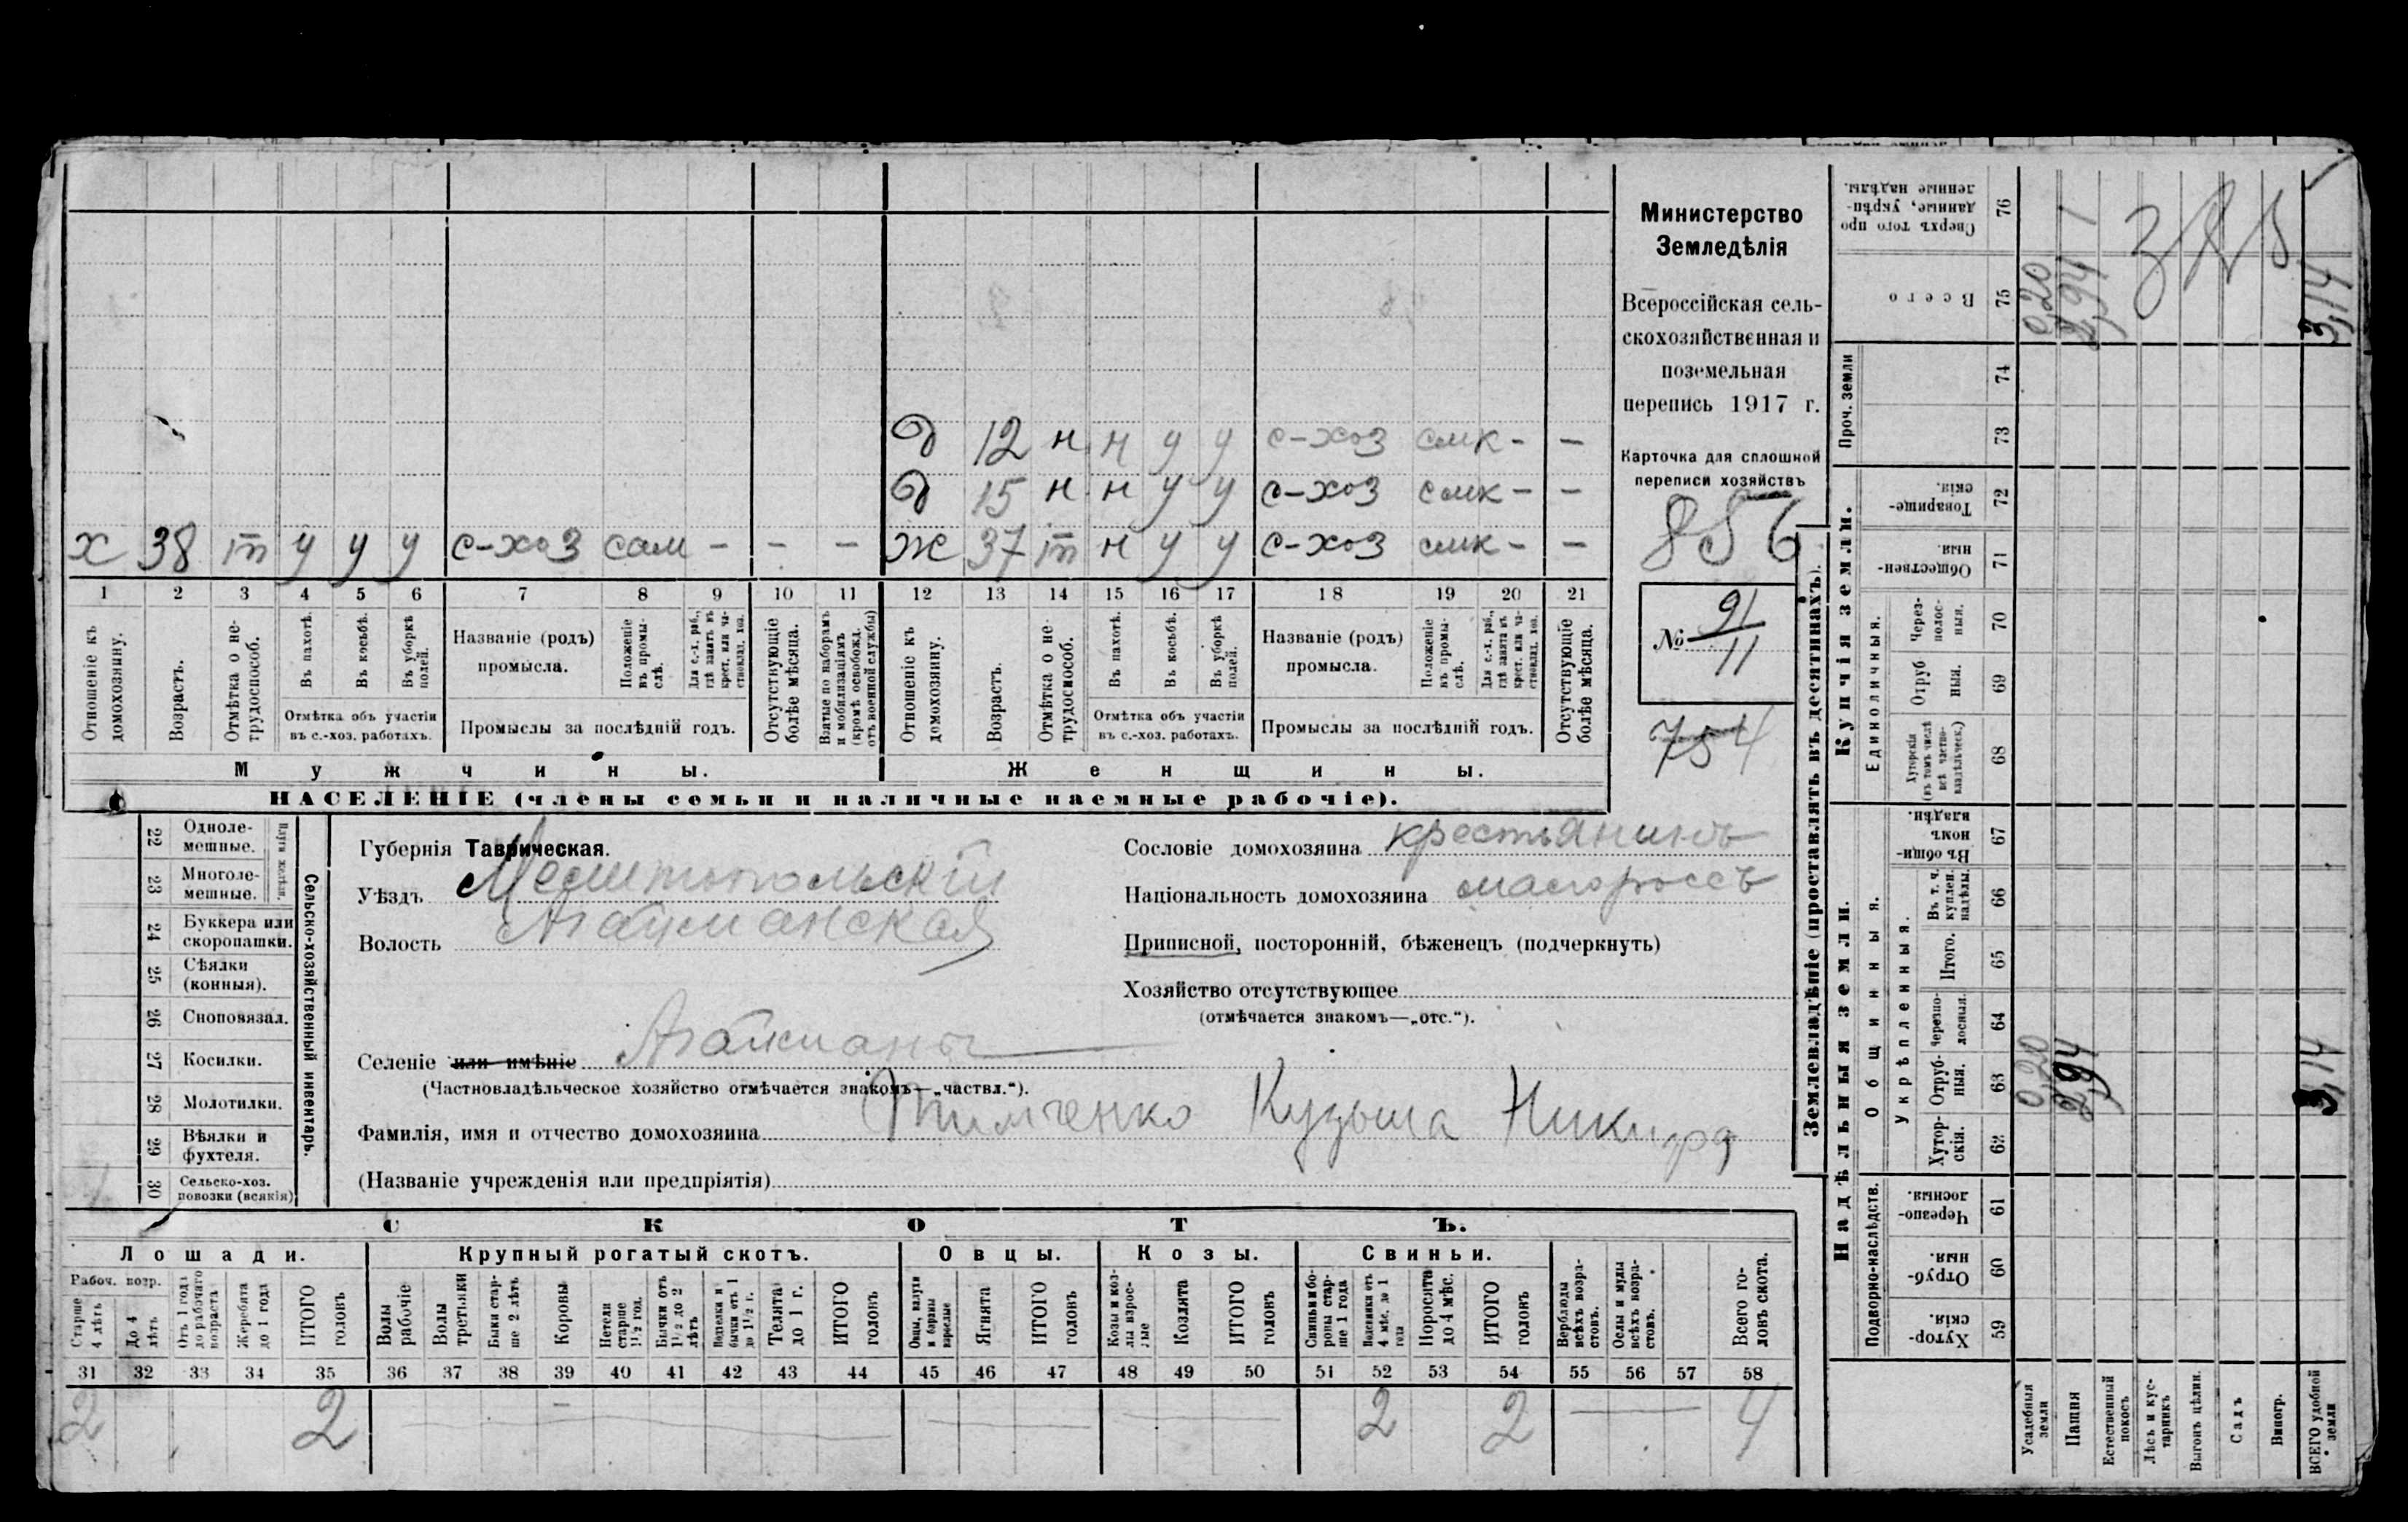 д 12 н н у у с-хоз смк - -
д 15 н н у у с-хоз смк - -
х 38 т у у у с-хоз сам - - - ж 37 т н у у с-хоз смк - -
1 2 3 4 5 6 7 8 9 10 11 12 13 14 15 16 17 18 19 20 21
Отношеніе къ домохозяину.
Возрастъ.
Отмѣтка о не-трудоспособ.
Въ пахотѣ.
Въ косьбѣ.
Въ уборкѣ полей.
Отмѣтка объ участіи
въ с.-хоз. работахъ.
Названіе (родъ)
промысла.
Положеніе въ промы-слѣ.
Для с.-х. раб., гдѣ занятъ въ крест. или ча-стновлад. хоз.
Промыслы за послѣдній годъ.
Отсутствующіе болѣе мѣсяца.
Взятые по наборамъ и мобилизаціямъ (кромѣ освобожд. отъ военной службы)
Отношеніе къ домохозяину.
Возрастъ.
Отмѣтка о не-трудоспособ.
Въ пахотѣ.
Въ косьбѣ.
Въ уборкѣ полей.
Отмѣтка объ участіи
въ с.-хоз. работахъ.
Названіе (родъ)
промысла.
Положеніе въ промы-слѣ.
Для с.-х. раб., гдѣ занята въ крест. или ча-стновлад. хоз.
Промыслы за послѣдній годъ.
Отсутствующіе болѣе мѣсяца.
Мужчины.
Женщины.
НАСЕЛЕНІЕ (члены семьи и наличные наемные рабочіе).
Министерство
Земледѣлія
Всероссійская сель-
скохозяйственная и
поземельная
перепись 1917 г.
Карточка для сплошной
переписи хозяйствъ
856
№ 91/11
754
22 Одноле-мешные.
23 Многоле-мешные.
24 Буккера или скоропашки.
25 Сѣялки (конныя).
26 Сноповязал.
27 Косилки.
28 Молотилки.
29 Вѣялки и фухтеля.
30 Сельско-хоз. повозки (всякія)
Сельско-хозяйственный инвентарь.
Губернія Таврическая.
Уѣздъ Мелитопольскій
Волость Агайманская
Селеніе или имѣніе Агайманы
(Частновладѣльческое хозяйство отмѣчается знакомъ—„частвл.“).
Фамилія, имя и отчество домохозяина Тимченко Кузьма Никифр
(Названіе учрежденія или предпріятія)
Сословіе домохозяина крестьянинъ
Національность домохозяина малороссъ
Приписной, посторонній, бѣженецъ (подчеркнуть)
Хозяйство отсутствующее
(отмѣчается знакомъ—„отс.“).
СКОТЪ.
Лошади.
Крупный рогатый скотъ.
Овцы.
Козы.
Свиньи.
Рабоч. возр.
Старше 4 лѣтъ
До 4 лѣтъ
Отъ 1 года до рабочаго возраста
Жеребята до 1 года
ИТОГО головъ
Волы рабочіе
Волы третьяки
Быки стар-ше 2 лѣтъ
Коровы
Нетели старше 1½ год.
Бычки отъ 1½ до 2 лѣтъ
бычки отъ 1 до 1½ г.
Телята до 1 г.
ИТОГО головъ
Овцы, валухи и бараны взрослые
Ягнята
ИТОГО головъ
Козы и коз-лы взрос-лые
Козлята
ИТОГО головъ
Свиньи и бо-ровы стар-ше 1 года
Подсвинки отъ 4 мѣс. до 1 года
Поросята до 4 мѣс.
ИТОГО головъ
Верблюды всѣхъ возра-стовъ.
Ослы и мулы всѣхъ возра-стовъ.
Всего го-ловъ скота.
31 32 33 34 35 36 37 38 39 40 41 42 43 44 45 46 47 48 49 50 51 52 53 54 55 56 57 58
2 2 2 2 4
Землевладѣніе (проставлять въ десятинахъ).
Надѣльныя земли.
Купчія земли.
Проч. земли
Подворно-наслѣдств.
Общинныя.
Укрѣпленныя.
Единоличныя.
59 Хутор-скія.
60 Отруб-ныя.
61 Черезпо-лосныя.
62 Хутор-скія.
63 Отруб-ныя.
64 Черезпо-лосныя.
65 Итого.
66 Въ т. ч. куплен. надѣлы.
67 Въ общи-номъ владѣн.
68 Хуторскія (въ томъ числѣ всѣ частно-владѣльческ.)
69 Отруб ныя.
70 Через-полос-ныя.
71 Обществен-ныя.
72 Товарище-скія.
73
74
75 Всего
76 Сверхъ того про данные, укрѣп-ленные надѣлы.
Усадебныя земли
Пашня
Естественный покосъ
Лѣсъ и кус-тарникъ
Выгонъ цѣлин.
Садъ
Виногр.
ВСЕГО удобной земли
0,20
2,94
3,14
0,20
2,94
3,14